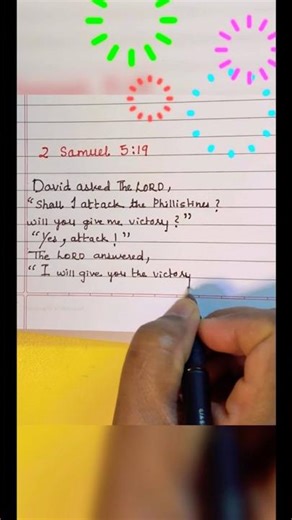 2 Samuel 5:19
David asked The LORD,
"Shall I attack the Phillistines?
will you give me victory?"
"Yes, attack!"
The LORD answered,
"I will give you the victory